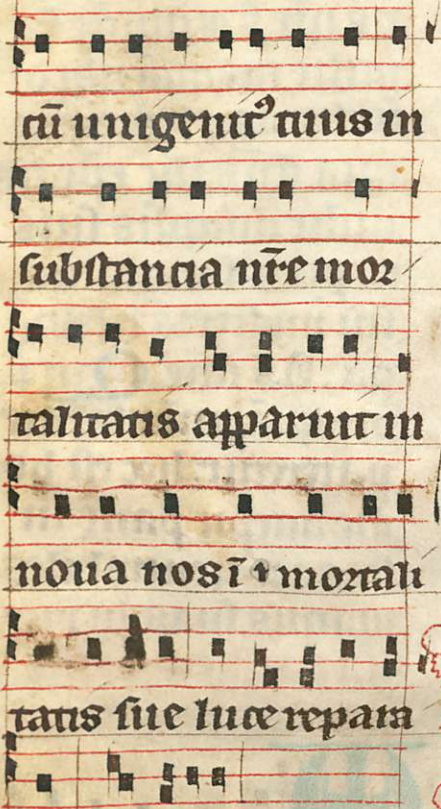 cū unigenitꝰ tuus in
substancia nr̄e mor
talitatis apparuit in
noua nos ī ı mortali
tatis sue luce repara